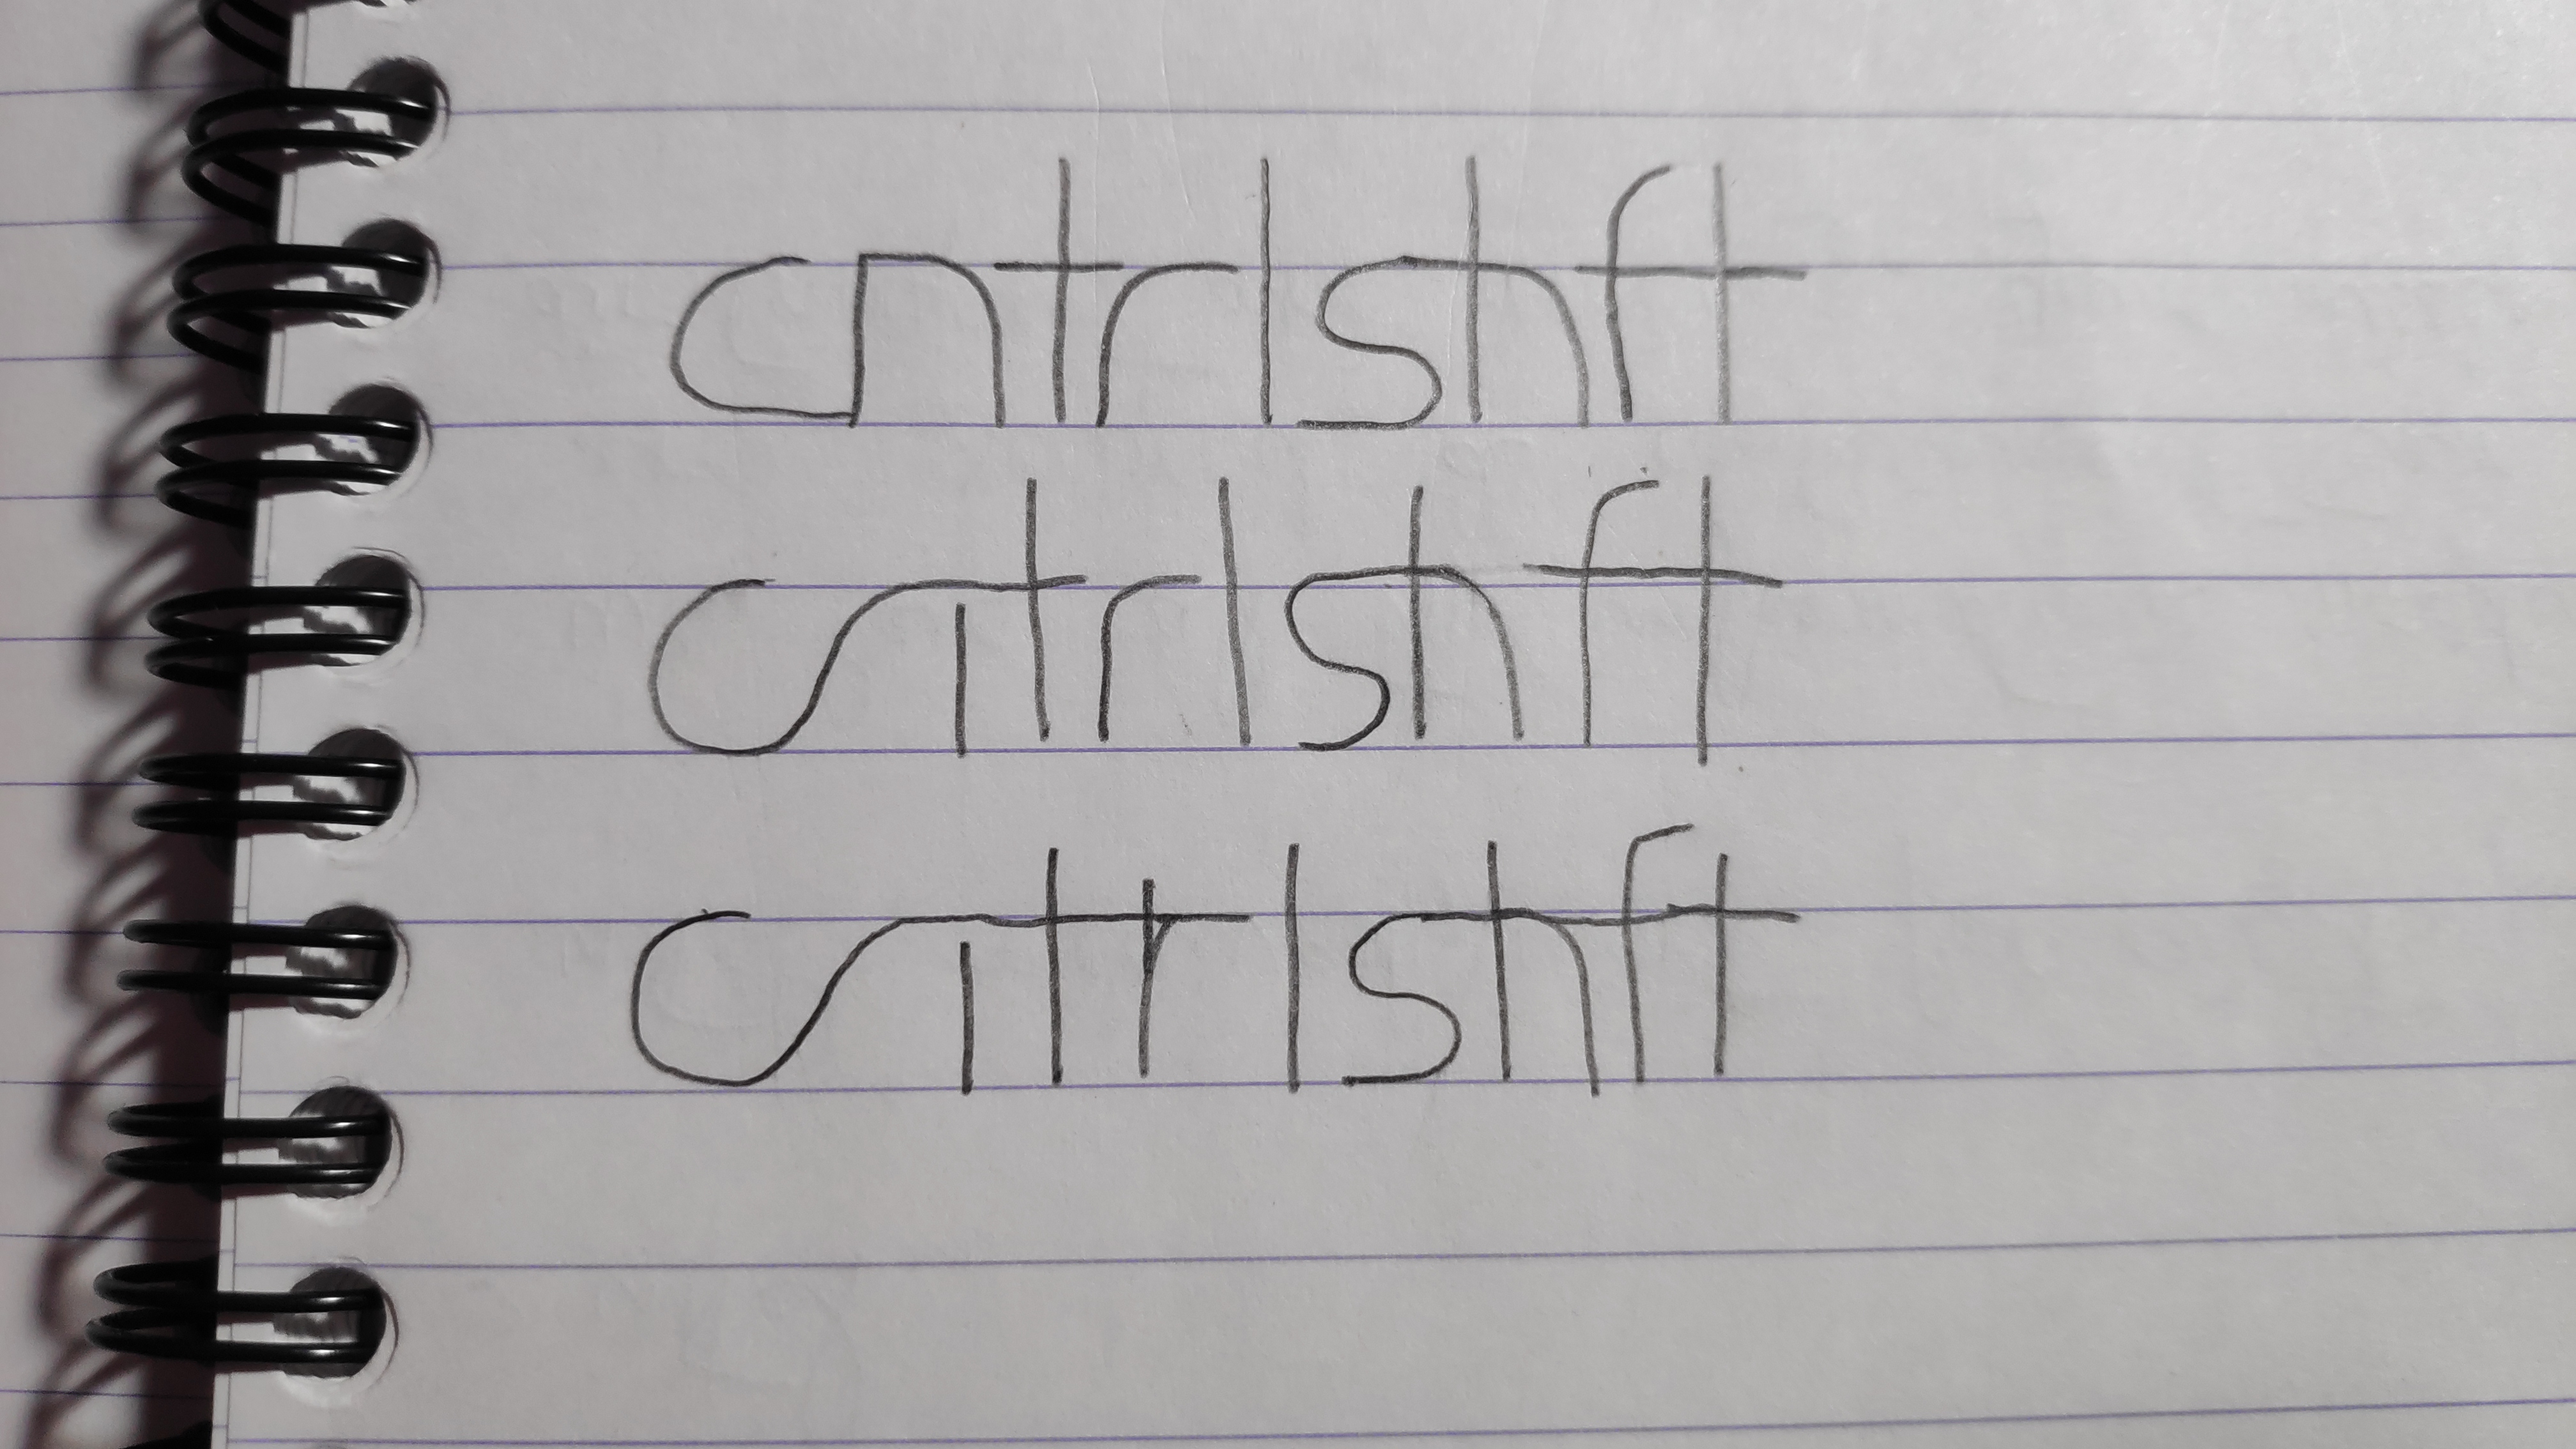 cntrlshft
cntrlshft
cntrlshft